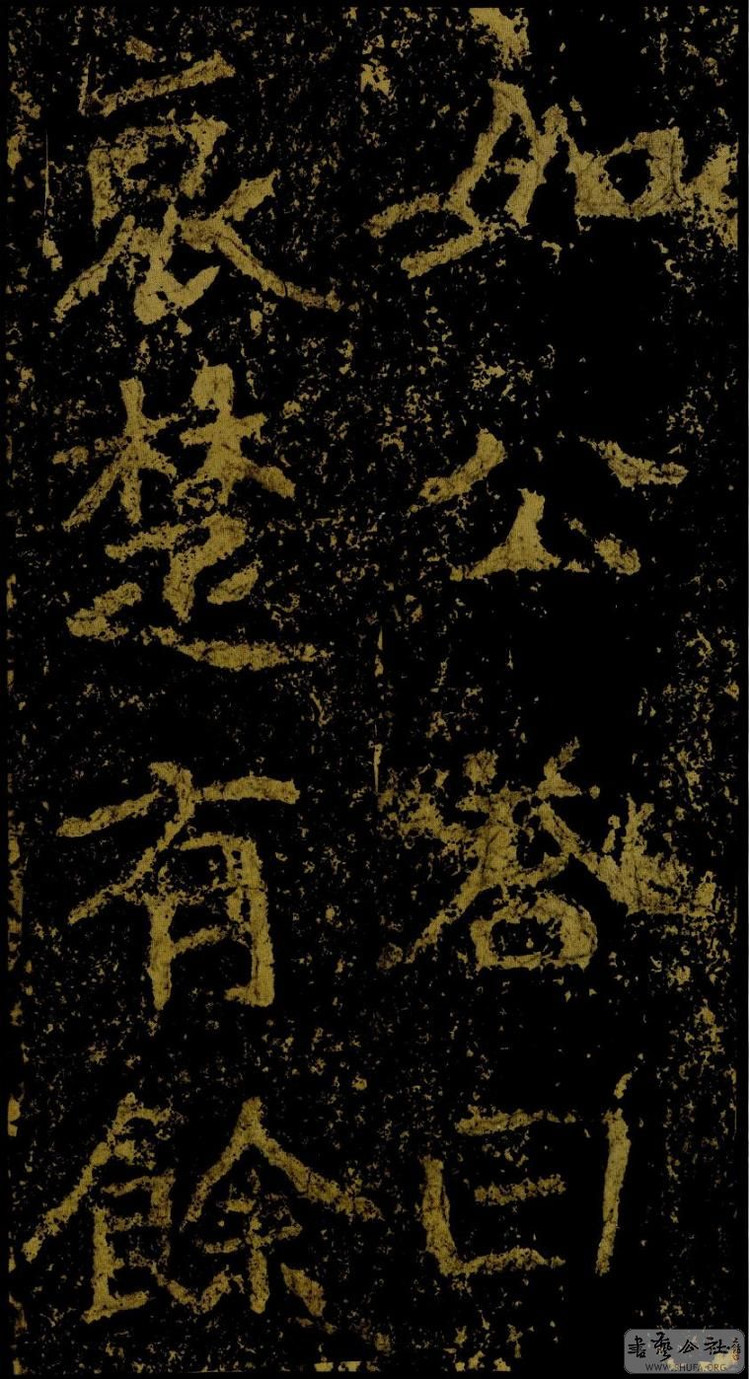 如公荅曰
哀楚有餘
書藝公社
WWW.SHUFA.ORG